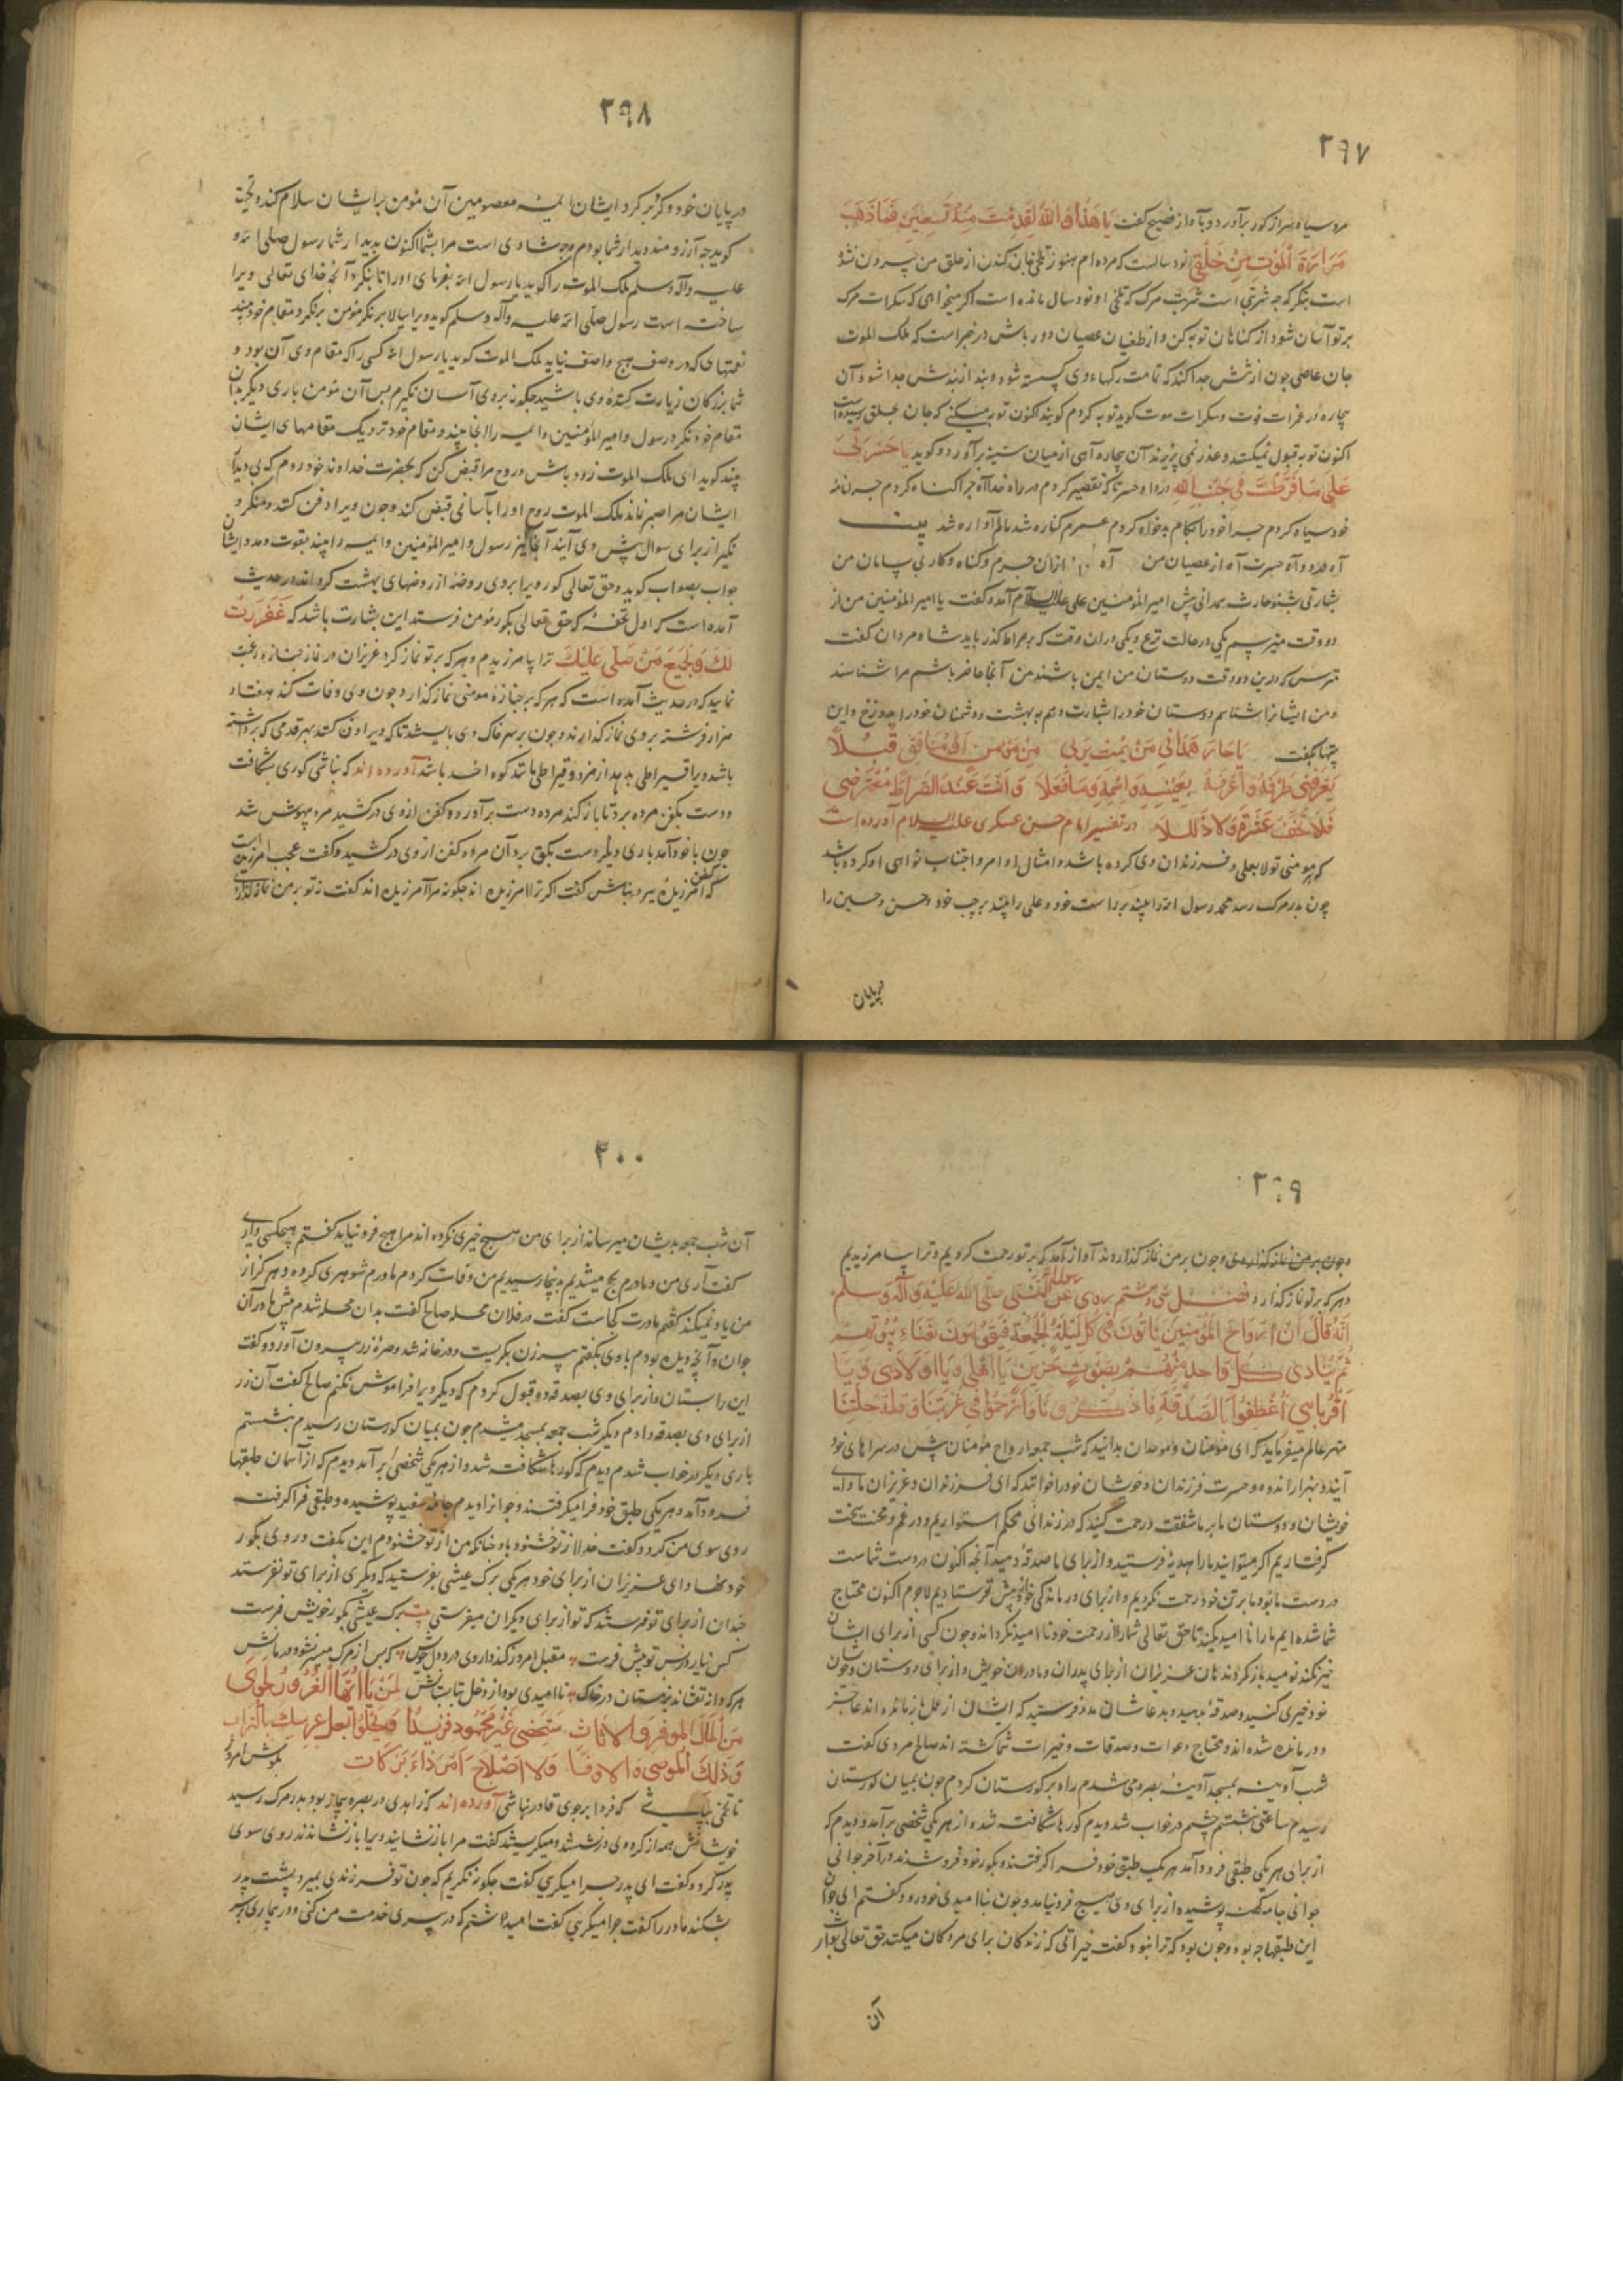 ۲۹۷
مرد سیاه سر از کور برآورد و بآواز فصیح کفت یَا هَذَا وَاللهُ لَقَدْ مِتُّ مُنْذُ تِسعِینَ فَمَا ذَهَبَ
مَرَارَةَ الْمَوْتِ مِنْ خَلْقِی نود سالست که مرده ام هنوز تلخی جان کندن از حلق من بیرون نشده
است بنکر که چه شربتی است شربت مرک که تلخی او نود سال مانده است اکر میخواهی که سکرات مرک
بر تو آسان شود از کناهان توبه کن و از طغیان عصیان دور باش در خبر است که ملک الموت
جان عاصی چون از تنش جدا کند که تمامت رکهاء وی کسسته شود و بند از بندش جدا شود آن
بیچاره در غمرات فوت و سکرات موت کوید توبه کردم کویند اکنون توبه میکنی که جان بحلق رسیده است
اکنون توبه قبول نمیکنند و عذر نمی پذیرند آن بیچاره آهی از میان سینه برآورد و کوید یَا حَسْرَتَی
عَلَی مَا فَرَّطْتُ فِی جَنْبِ اللهِ دردا و حسرتا که تقصیر کردم در راه خدا آه چرا کناه کردم چرا نامه
خود سیاه کردم چرا خود را بکام بدخواه کردم عمرم کناره شد عالم آواره شد بیت
آه درد و آه حسرت آه از عصیان من آه از آن جرم و کناه و کار بی پایان من
بشارتی بشنو حارث همدانی پیش امیر المؤمنین علی علیه السلام آمد و کفت یا امیر المؤمنین من از
دو وقت میترسم یکی در حالت نزع و یکی در آن وقت که بر صراط کذر باید شاه مردان کفت
مترس که درین دو وقت دوستان من ایمن باشند من آنجا حاضر باشم مرا شناسند
و من ایشانرا شناسم دوستان خود را بشارت دهم به بهشت و دشمنان خود را بدوزخ و این
بیتها بکفت یَا حَارَ هَمْدَانِ مَنْ یَمُتْ یَرَنِی مِنْ مُؤْمِنٍ اَوْ مُنَافِقٍ قُبُلًا
یَعْرِفُنِی طَرْفُهُ وَ أَعْرِفُهُ بِعَیْنِهِ وَاسْمِهِ وَ مَا فَعَلَا وَ اَنْتَ عِنْدَ الصِّرَاطِ مُعْتَرِضِی
فَلَا تَخَفْ عَثْرَةً وَلَا زَلَلَا در تفسیر امام حسن عسکری علیه السلام آورده است
که هر مومنی تولا بعلی و فرزندان وی کرده باشد و امتثال اوامر و اجتناب نواهی او کرده باشد
چون بدر مرک رسد محمد رسول الله را بیند بر راست خود و علی را بیند بر چپ خود و حسن و حسین را
در پایان
۲۹۸
در پایان خود و کرد بر کرد ایشان ائمه معصومین آن مؤمن بر ایشان سلام کند و تحیت
کوید چه آرزومند دیدار شما بودم و چه شادی است مرا بشما اکنون بدیدار شما رسول صلی الله
علیه وآله وسلم ملک الموت را کوید یا رسول الله بفرمای او را تا بنکرد آنچه خدای تعالی ویرا
ساخته است رسول صلی الله علیه وآله وسلم کوید ویرا ببالا بر نکر مؤمن بر نکرد مقام خود بیند
نعمتهای که در وصف هیچ واصف نیاید ملک الموت کوید یا رسول الله کسی را که مقام وی آن بود و
شما بزرکان زیارت کننده وی باشید چکونه بروی آسان نکیرم پس آن مؤمن باری دیکر بدان
مقام خود نکرد رسول و امیر المؤمنین و ائمه را آنجا بیند و مقام خود نزدیک مقامهای ایشان
بیند کوید ای ملک الموت زود باش و روح مرا قبض کن که بحضرت خداوند خود روم که بی دیدار
ایشان مرا صبر نماند ملک الموت روح او را بآسانی قبض کند و چون ویرا دفن کنند و منکر و
نکیر از برای سوال پیش وی آیند آنجا نیز رسول و امیر المؤمنین و ائمه را بیند بقوت و مدد ایشان
جواب بصواب کوید و حق تعالی کور ویرا بروی روضه از روضهای بهشت کرداند در حدیث
آمده است که اول تحفه که حق تعالی بکور مؤمن فرستد این بشارت باشد که غَفَرْتُ
لَکَ وَلِجَمِیعِ مَنْ صَلَّی عَلَیْکَ ترا بیامرزیدم و هر که بر تو نماز کرد عزیزان در نماز جنازه رغبت
نمایید که در حدیث آمده است که هر که بر جنازه مومنی نماز کذارد چون وی وفات کند هفتاد
هزار فرشته بروی نماز کذارند و چون بر سر خاک وی بایستد تا که ویرا دفن کنند بهر قدمی که برداشته
باشد ویرا قیراطی بدهد از مزد و قیراطی باشد کوه احد باشد آورده اند که نباشی کوری بشکافت
و دست بکفن مرده برد تا باز کند مرده دست برآورد و کفن از وی در کشید مرد بیهوش شد
چون باخود آمد باری دیکر دست بکفن برد آن مرده کفن از وی در کشید و کفت عجب امریست
که آمرزیده کفن آمرزیده میبرد نباش کفت اکر ترا آمرزیده اند چکونه مرا آمرزیده اند کفت نه تو بر من نماز کذاردی
۲۹۹
و چون بر من نماز کذاردی و چون بر من نماز کذاردند آواز آمد که بر تو رحمت کردیم و ترا بیامرزیدیم
و هر که بر تو نماز کذارد فصل سی و ششم روی عَنِ النَّبِیِّ صَلَّی اللهُ عَلَیْهِ وَآلِهِ وَسَلَّمَ
اَنَّهُ قَالَ اِنَّ اَرْوَاحَ الْمُؤْمِنِینَ یَاْتُونَ فِی کُلِّ لَیْلَةِ الْجُمُعَةِ فَیَقُومُونَ بِفِنَاءِ بُیُوتِهِمْ
ثُمَّ یُنَادِی کُلُّ وَاحِدٍ مِنْهُمْ بِصَوْتٍ حَزِینٍ یَا اَهْلِی وَ یَا اَوْلَادِی وَ یَا
اَقْرِبَائِی اُعْطُفُوا بِالصَّدَقَةِ فَاذْکُرُونَا وَ ارْحَمُوا فِی غُرْبَتِنَا وَ قِلَّةِ حِیلَتِنَا
مهتر عالم میفرماید که ای مؤمنان و موحدان بدانید که شب جمعه ارواح مومنان پیش در سراهای خود
آیند و بهزار اندوه و حسرت فرزندان و خویشان خود را خوانند که ای فرزندان و عزیزان ما و ای
خویشان و دوستان ما بر ما شفقت و رحمت کنید که در زندانی محکم استواریم و در غم و محنت سخت
کرفتاریم اکر میتوانید ما را هدیه فرستید و از برای ما صدقه دهید آنچه اکنون در دست شماست
در دست ما بود ما بر تن خود رحمت نکردیم و از برای درماندکی خود پیش نفرستادیم لاجرم اکنون محتاج
شما شده ایم ما را نا امید مکنید تا حق تعالی شما را از رحمت خود نا امید نکرداند و چون کسی از برای ایشان
خیر نکند نومید باز کردند هان عزیزان از برای پدران و مادران خویش و از برای دوستان و خویشان
خود خیری کنید و صدقه بدهید و بدعاشان مدد فرستید که ایشان از عمل باز مانده اند عاجز
و درمانده شده اند و محتاج دعوات و صدقات و خیرات شما کشته اند صالح مردی کفت
شب آدینه بمسجد آدینه بصره می شدم راه بر کورستان کردم چون بمیان کورستان
رسیدم ساعتی بنشستم چشمم در خواب شد دیدم کورها شکافته شد و از هر یکی شخصی برآمد و دیدم که
از برای هر یکی طبقی فرود آمد هر یک طبق خود فرا کرفتند و بکور خود فرو شدند و در آخر جوانی
جوانی جامه کهنه پوشیده از برای وی هیچ فرو نیامد و چون بنا امیدی خود رود کفتم ای جوان
این طبقها چه بود و چون بود که ترا نبود کفت خیراتی که زندکان برای مردکان میکنند حق تعالی ثواب
آن
۳۰۰
آن شب جمعه بدیشان میرساند از برای من هیچ خیری نکرده اند مرا هیچ فرو نیاید کفتم هیچکس داری
کفت آری من و مادرم بحج میشدیم و بنجا رسیدیم من وفات کردم مادرم شوهری کرده و هرکز از
من یاد نمیکند کفتم مادرت کجاست کفت در فلان محله صالح کفت بدان محله شدم پیش مادر آن
جوان و آنچه دیده بودم با وی بکفتم پیرزن بکریست و در خانه شد و صره زر بیرون آورد و کفت
این را بستان و از برای وی بصدقه ده و قبول کردم که دیکر ویرا فراموش نکنم صالح کفت آن زر
از برای وی بصدقه دادم دیکر شب جمعه بمسجد میشدم چون بمیان کورستان رسیدم بنشستم
باری دیکر در خواب شدم دیدم که کورها شکافته شد و از هر یکی شخصی برآمد دیدم که از آسمان طبقها
فرود آمد و هر یکی طبق خود فرا میکرفتند و جوانرا دیدم جامه سفید پوشیده و طبقی فرا کرفت
روی سوی من کرد و کفت خدا از تو خشنود باد چنانکه من از تو خشنودم این بکفت و روی بکور
خود نهاد ای عزیزان از برای خود هر یکی برک عیشی بفرستید که دیکری از برای تو نفرستد
چندان از برای تو فرستند که تو از برای دیکران میفرستی بیت برک عیشی بکور خویش فرست
کس نیارد ز پس تو پیش فرست مقبل امروز کند داروی درد دل خویش که پس از مرک میسر نشود درمانش
هر که دانه نفشاند بزمستان در خاک نا امیدی بود از دخل تابستانش
مِنَ الْمَالِ الْمُوَفَّرِ وَ الْاَثَاثِ سَتَمْضِی غَیْرَ مَحْمُودٍ فَرِیدًا وَ یَخْلُو بَعْلُ عِرْسِکَ بِالتُّرَابِ
بکوش امروز
تا تخمی بپاشی که فردا بر جوی قادر نباشی آورده اند که زاهدی در بصره بیمار بود بدر مرک رسید
خویشانش همه از کرد وی در نشستند و میکریستند کفت مرا باز نشانید ویرا باز نشاندند روی سوی
پدر کرد و کفت ای پدر چرا میکریی کفت چکونه نکریم که چون تو فرزندی بمیرد و پشت پدر
بشکند مادر را کفت چرا میکریی کفت امید داشتم که در پیری خدمت من کنی و در بیماری بر سر